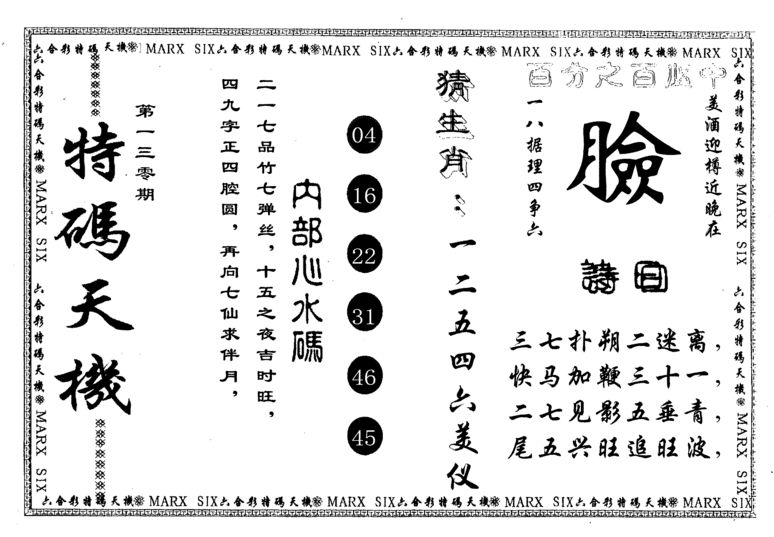 六合彩特碼天機 MARX SIX六合彩特碼天機 MARX SIX六合彩特碼天機 MARX SIX六合彩特碼天機 MARX SIX
六合彩特碼天機 MARX SIX 六合彩特碼天機 MARX SIX
百分之百必中
美酒迎樽近晚在
臉
一八据理四争六
詩曰
三七扑朔二迷离，
快马加鞭三十一，
二七见影五垂青，
尾五兴旺追旺波，
猜生肖：一二五四六美仪
04
16
22
31
46
45
内部心水碼
二一七品竹七弹丝，十五之夜吉时旺，
四九字正四腔圆，再向七仙求伴月，
第一三零期
特碼天機
六合彩特碼天機 MARX SIX 六合彩特碼天機 MARX SIX
六合彩特碼天機 MARX SIX六合彩特碼天機 MARX SIX六合彩特碼天機 MARX SIX六合彩特碼天機 MARX SIX